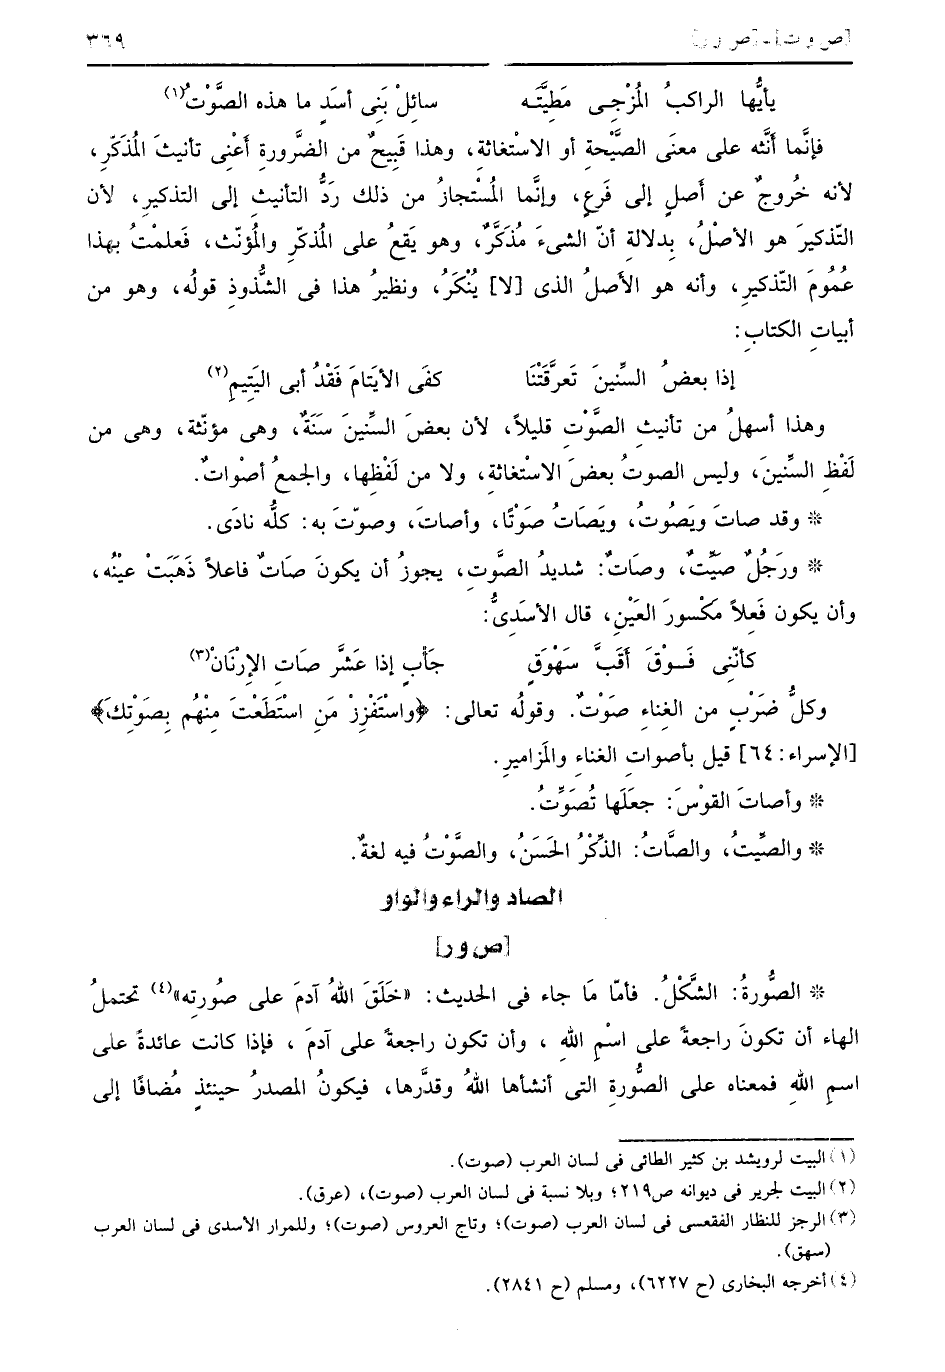 [ص و ت] - [ص و ر] ٣٦٩
يأيُّها الراكبُ المُزْجِى مَطِيَّتَه سائلْ بَنِى أسَدٍ ما هذه الصَّوْتُ(١)
فإنَّما أنَّثه على معنَى الصَّيْحة أو الاستْغاثة، وهذا قَبِيحٌ من الضَّرورةِ أعْنِى تأنيثَ المُذكَرّ،
لأنه خُروجٌ عن أصلٍ إلى فَرعٍ، وإنَّما المُسْتجازُ من ذلك ردُّ التأنيثِ إلى التذكيرِ، لأن
التّذكيرَ هو الأصْلُ، بِدلالةِ أنّ الشىءَ مُذكَّرٌ، وهو يَقعُ على المُذكّرِ والمُؤنّث، فَعلمْتُ بهذا
عُمُومَ التّذكيرِ، وأنه هو الأَصلُ الذى [لا] يُنْكَرُ، ونظيرُ هذا فى الشُّذوذِ قولُه، وهو من
أبياتِ الكتابِ:
إذا بعضُ السِّنينَ تَعرَّقَتْنَا كفَى الأيْتَامَ فَقْدُ أبى اليَتِيمِ(٢)
وهذا أسهلُ من تأنيثِ الصَّوْتِ قليلاً، لأن بعضَ السِّنينَ سَنَةٌ، وهى مؤنّثة، وهى من
لَفْظِ السِّنينَ، وليس الصوتُ بعضَ الاسْتغاثة، ولا من لَفْظِها، والجمعُ أصْواتٌ.
* وقد صاتَ ويَصُوتُ، ويَصَاتُ صَوْتًا، وأصاتَ، وصوّتَ به: كلُّه نادَى.
* ورَجُلٌ صَيِّتٌ، وصَاتٌ: شديدُ الصَّوتِ، يجوزُ أن يكونَ صَاتٌ فاعلاً ذَهَبَتْ عينُه،
وأن يكون فَعِلاً مَكْسورَ العَيْنِ، قال الأسَدِىُّ:
كأنّنِى فَـوْقَ أقَبَّ سَهْوَقٍ جَأْبٍ إذا عَشَّر صَاتِ الإرْنَانْ(٣)
وكلُّ ضَرْبٍ من الغِناءِ صَوْتٌ. وقولُه تعالى: ﴿واسْتَفْزِزْ مَنِ اسْتَطَعْتَ مِنْهُم بِصَوْتِكَ﴾
[الإسراء: ٦٤] قيل بأصواتِ الغناءِ والمَزاميرِ.
* وأصاتَ القوْسَ: جعَلَها تُصَوِّتُ.
* والصِّيتُ، والصَّاتُ: الذِّكْرُ الحَسَنُ، والصَّوْتُ فيه لغةٌ.
الصاد والراء والواو
[ص و ر]
* الصُّورةُ: الشَّكْلُ. فأمّا مَا جاء فى الحديث: «خَلَقَ اللهُ آدمَ على صُورته»(٤) تحتملُ
الهاء أن تكونَ راجعةً على اسْمِ اللهِ ، وأن تكون راجعةً على آدمَ ، فإذا كانت عائدةً على
اسمِ اللهِ فمعناه على الصُّورةِ التى أنشأها اللهُ وقدَّرها، فيكونُ المصدرُ حينئذٍ مُضافًا إلى
(١) البيت لرويشد بن كثير الطائى فى لسان العرب (صوت).
(٢) البيت لجرير فى ديوانه ص٢١٩؛ وبلا نسبة فى لسان العرب (صوت)، (عرق).
(٣) الرجز للنظار الفقعسى فى لسان العرب (صوت)؛ وتاج العروس (صوت)؛ وللمرار الأسدى فى لسان العرب
(سهق).
(٤) أخرجه البخارى (ح ٦٢٢٧)، ومسلم (ح ٢٨٤١).